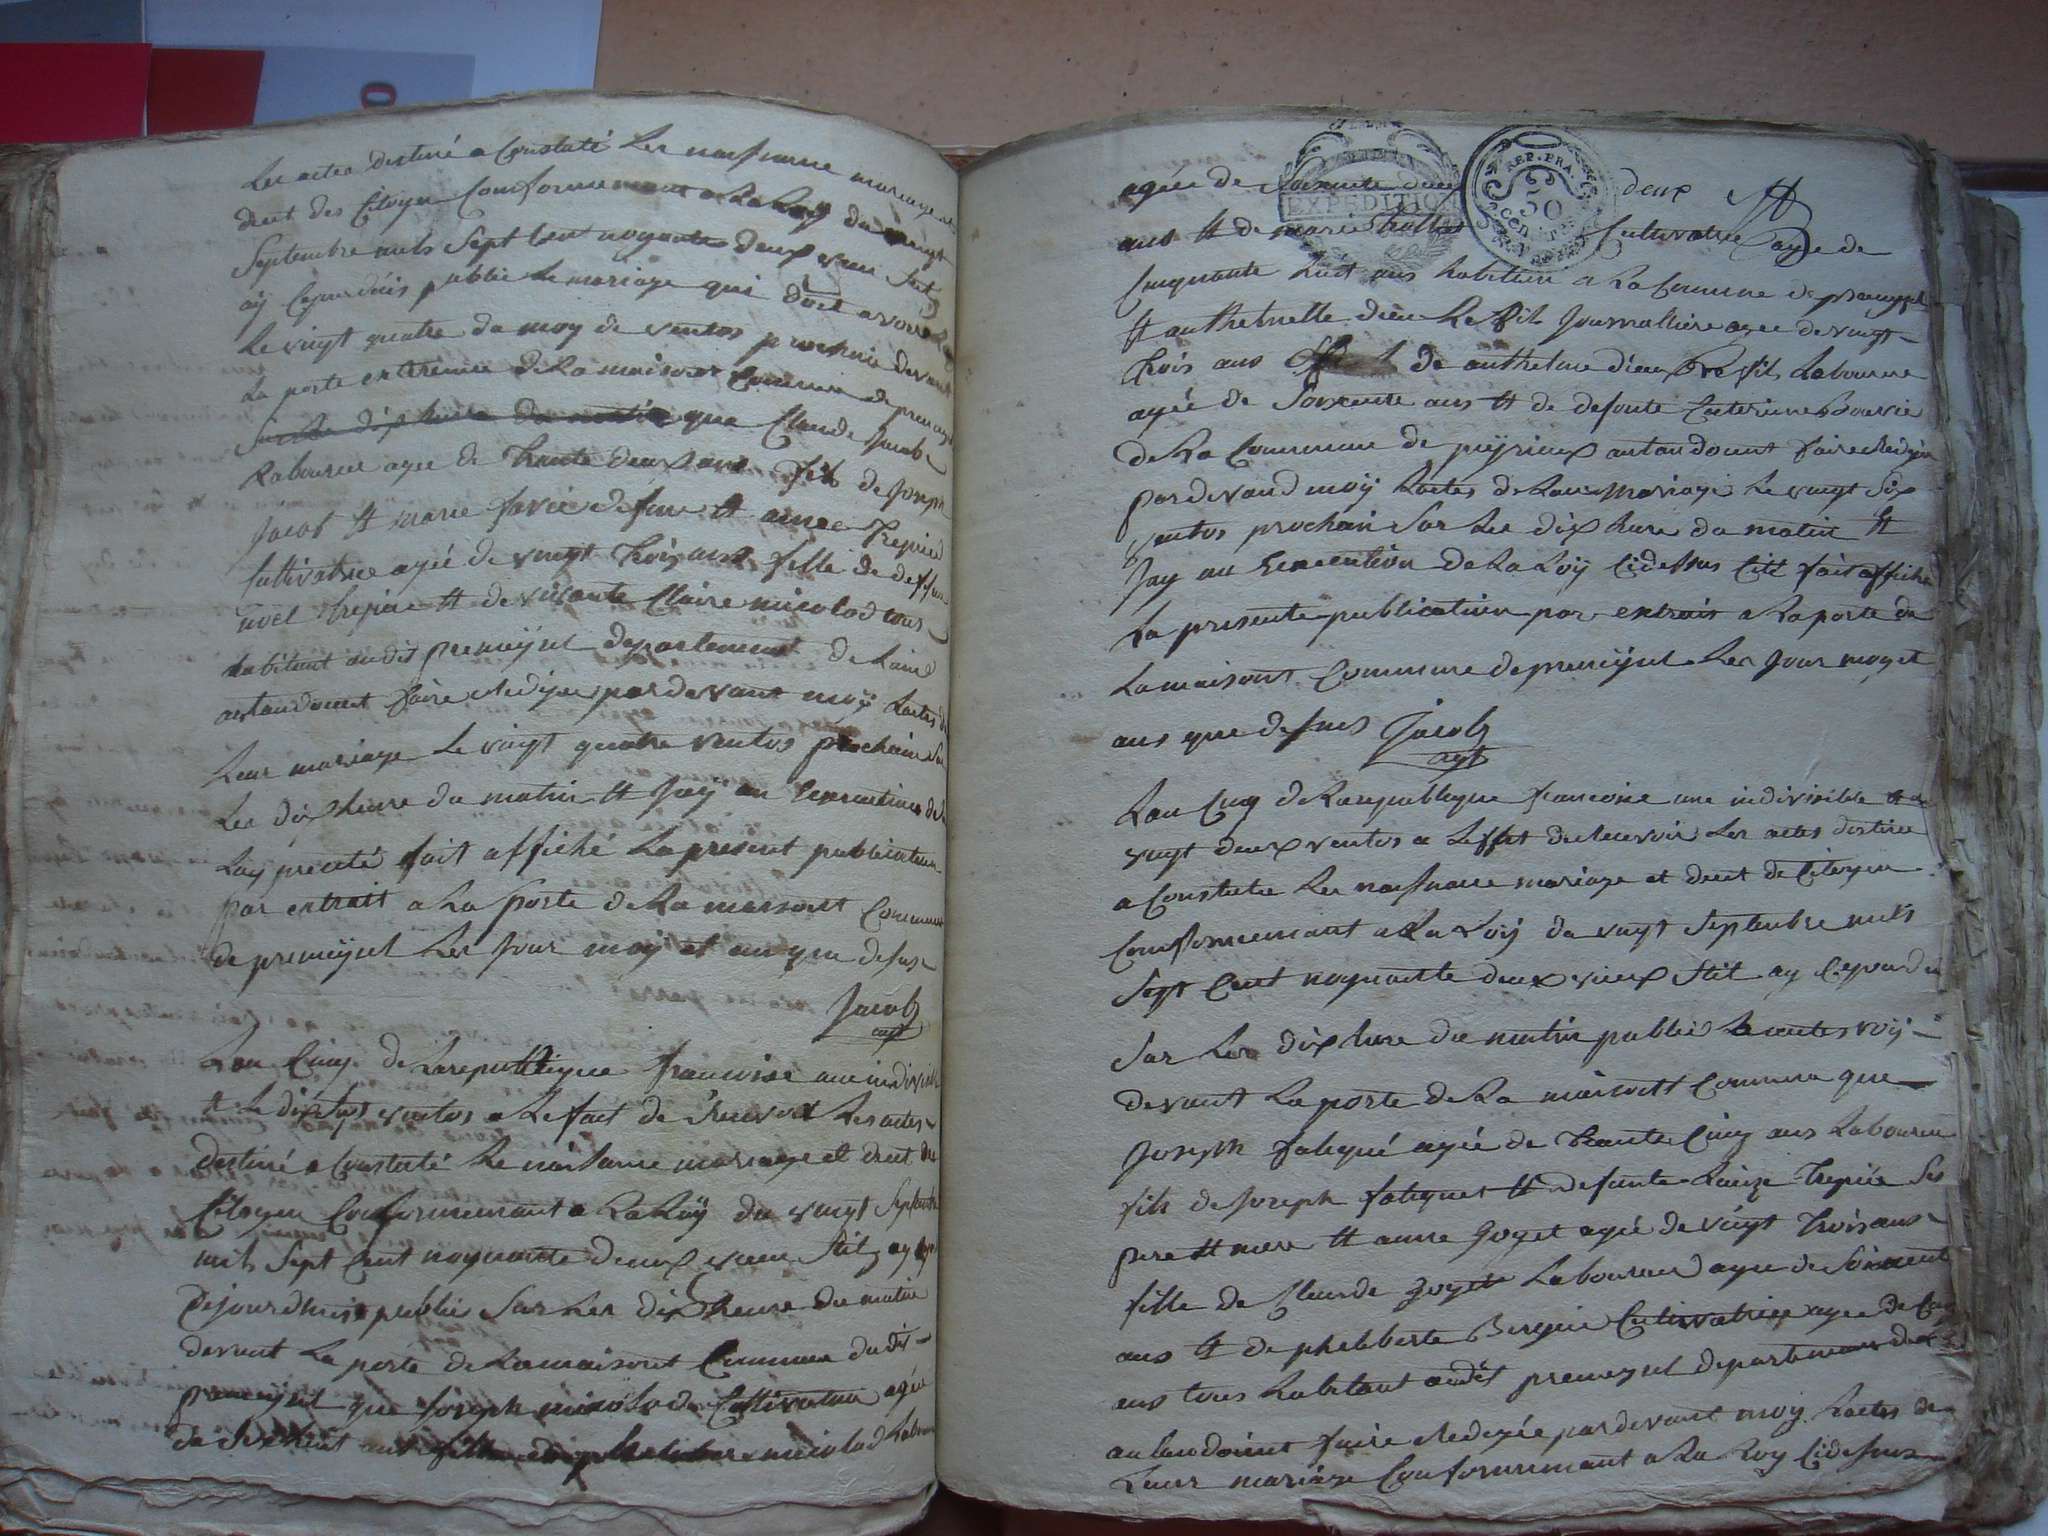 Les actes destiné a Constaté Les naissance mariage et
decet des Citoyen Conformement a La Loy du vingt
Septembre mils Sept Cent noyante deux vieu stil
aÿ Cejourduis publie Le mariage qui doit avoir
Le vingt quatre du moy de ventos prochain devant
La porte exterieure de La maisont Commune de premeyzel
que Claude Jacob
Laboureur agee de trante deux ans fils de Joseph
Jacob et marie favie defunt et aimee Trepier
Cultivatrice agée de vingt trois ans fille de deffunt
noel trepier et de vivante Claire micolod tous
habitant audit premeÿzel departement de Laind
autandoient faire Redigee par devant moÿ Lactes de
Leur mariage Le vingt quatre ventos prochain Sur
Les dix heure du matin et Jaÿ au Execution de La
Loy precité fait affiché La present publication
par extrait a La porte de La maisont Commune
de premeÿzel Les Jour moy et an que desus
Jacob
agt
Lan Cinq de Larepublique francoise une indivisible
et Le dix ventos a Lefait de Recevoir Les actes
destiné a Constaté Le naissance mariage et decet des
Citoyen Conformement a La Loÿ du vingt Septembre
mils Sept Cent noyante deux vieu Stil aÿ
Cejourdhuis publie Sur Les dix heure du matin
devant La porte de Lamaisont Commune dudit
premeyzel que Joseph micolod Cultivateur agée
de ans micolod Laboureur
agée de Soixante deux
deux
EXPEDITION
REP. FRA.
50
CENT.
ans et de marie Cultivatrice agée de
Cinquante huit ans habitan a La Commune de premeyzel
et anthelmette dieu Le fils Journalliere agee de vingt
trois ans de anthelme dieu Le fils Laboureur
agée de Soixante ans et de defonte Caterine Bouvie
de La Commune de peÿrieux autandoient faire Redigée
par devand moÿ Lactes de Leur mariage Le vingt Six
ventos prochain Sur Les dix hure du matin et
Jay au Execution de La Loÿ Cidessus Cité fait affiché
La presente publication par extrais a La porte de
La maisont Commune de premeÿzel Les Jour moy et
ans que desus Jacob
agt
Lan Cinq de Larepublique francoise une indivisible et Le
vingt deux ventos a Leffet de Recevoir Les actes destine
a Constate Les naissance mariage et decet de Citoyen
Conformement a La Loÿ du vingt Septembre mils
Sept Cent noyante deux vieux Stil aÿ Cejourdui
Sur Les dix hure du matin publie
devant La porte de La maisont Commune que
Joseph fatiqué agée de trante Cinq ans Laboureur
fils de Joseph fatiquet et defunte Louize Trepiée Ses
pere et mere et anne Goyet agée de vingt trois ans
fille de Claude Goyet Laboureur agee de Soixante
ans et de philiberte Bergie Cultivatrice agee de
ans tous habitant audit premeyzel departement de
autandoient faire Redigée par devant moy Lactes de
Leur mariage Conformemant a La Loy Cidesus